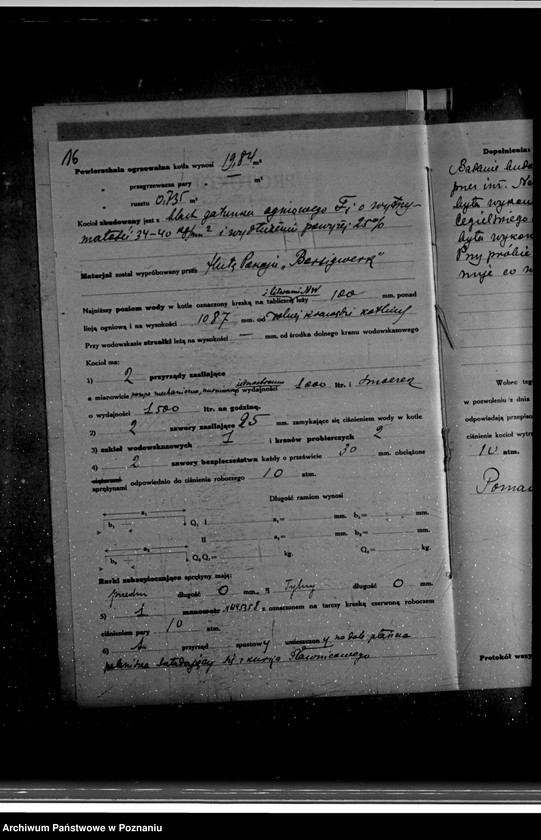 16
Powierzchnia ogrzewalna kotła wynosi 19,84 m²
" przegrzewacza pary — m²
" rusztu 0,735 m²
Kocioł zbudowany jest z blach gatunku ogniowego F1 o wytrzy-
małość 34-40 kg/mm² i wydłużeniu powyżej 25%
Materjał został wypróbowany przez Hutę "Borsigwerk"
z literami N.W
Najniższy poziom wody w kotle oznaczony kreską na tabliczce leży 100 mm. ponad
linją ogniową i na wysokości 1087 mm. od dolnej krawędzi kotliny
Przy wodowskazie strzałki leżą na wysokości — mm. od środka dolnego kranu wodowskazowego
Kocioł ma:
1) 2 przyrządy zasilające
a mianowicie pompa mechaniczna, wydajności 1000 ltr. i smoczek
o wydajności 1500 ltr. na godzinę.
2) 2 zawory zasilające 25 mm. zamykające się ciśnieniem wody w kotle
3) szkieł wodowskazowych 1 i kranów probierczych 2
4) 2 zawory bezpieczeństwa każdy o prześwicie 30 mm. obciążone
sprężynami odpowiednio do ciśnienia roboczego 10 atm.
Długość ramion wynosi
a₁ Q, I a₁= mm. b₁= mm.
b₁
II a₁= mm. b₁= mm.
a₁ Q, Q₁= kg. Q₁= kg.
b₁
Rurki zabezpieczające sprężyny mają:
przedni długość 0 mm., II Tylny długość 0 mm.
5) 1 manometr z oznaczonem na tarczy kreską czerwoną roboczem
ciśnieniem pary 10 atm.
6) 1 przyrząd spustowy umieszczony na dole płaszcza
składający się z kurka
Dopełnienia:
Badanie
przez inż.
była
Cegielskiego
była
Przy próbie
nuje co
Wobec
w pozwoleniu z dnia
odpowiadają
ciśnienie kocioł
10 atm.
Protokół
Archiwum Państwowe w Poznaniu